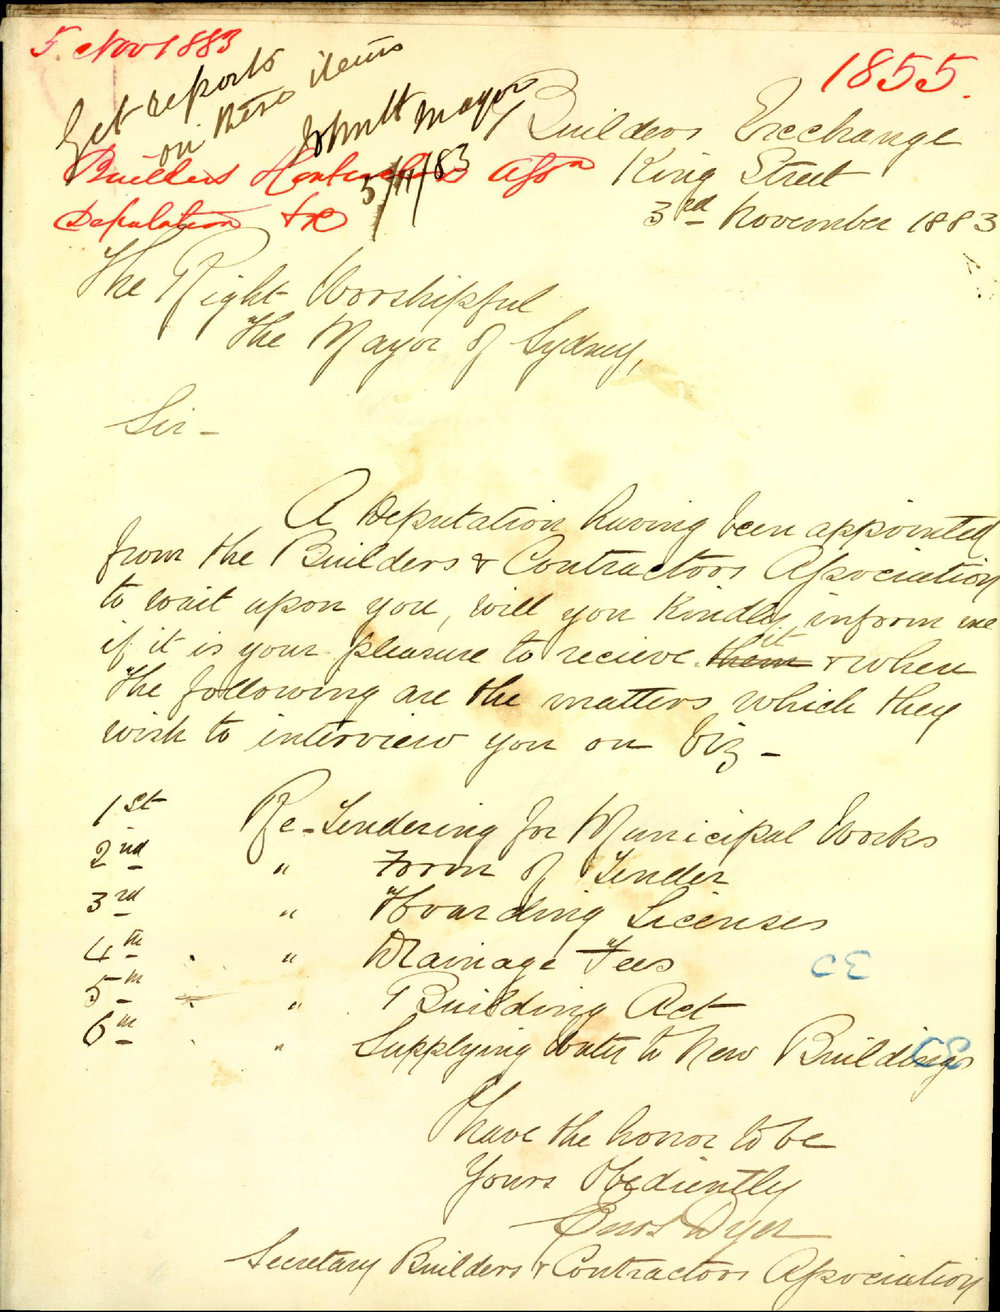 5 Nov 1883
1855.
Get reports
on these items
John H
Mayor
5/11/83
Builders Contractors Assn
Deputation &c
Builders Exchange
King Street
3rd November 1883
The Right Worshipful
The Mayor of Sydney,
Sir -
A Deputation having been appointed
from the Builders & Contractors Association
to wait upon you, will you kindly inform me
if it is your pleasure to recieve them it & when
The following are the matters which they
wish to interview you on Viz -
1st Re-Tendering for Municipal Works
2nd " Form of Tender
3rd " Hoarding Licenses
4th " Drainage Fees CE
5th " Building Act
6th " Supplying Water to New Buildings CE
I have the honor to be
Yours Obediently
Enos Dyer
Secretary Builders & Contractors Association